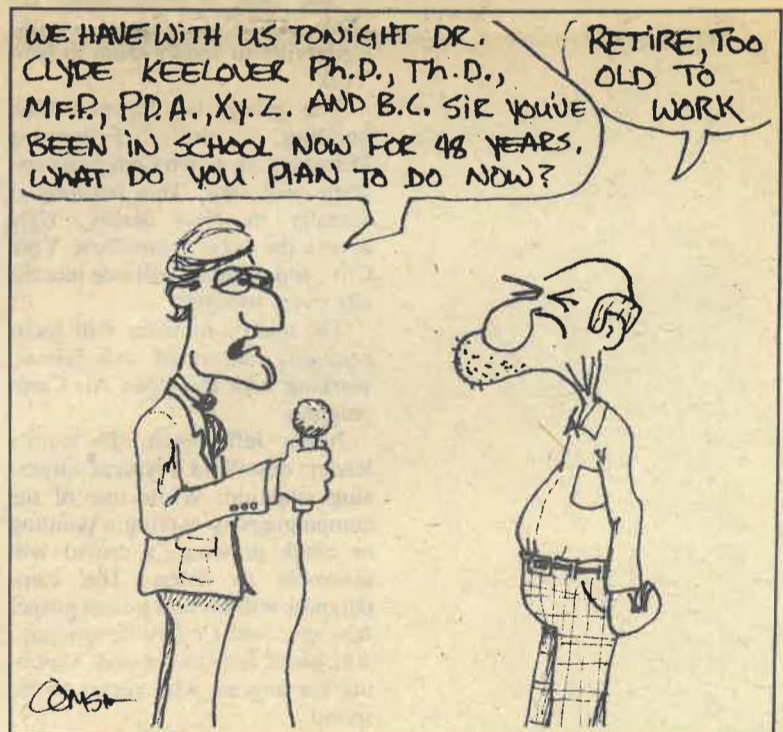 WE HAVE WITH US TONIGHT DR.
CLYDE KEELOVER Ph.D., Th.D.,
M.F.P., P.D.A., Xy.Z. AND B.C. SIR YOU'VE
BEEN IN SCHOOL NOW FOR 48 YEARS.
WHAT DO YOU PLAN TO DO NOW?
RETIRE, TOO
OLD TO
WORK